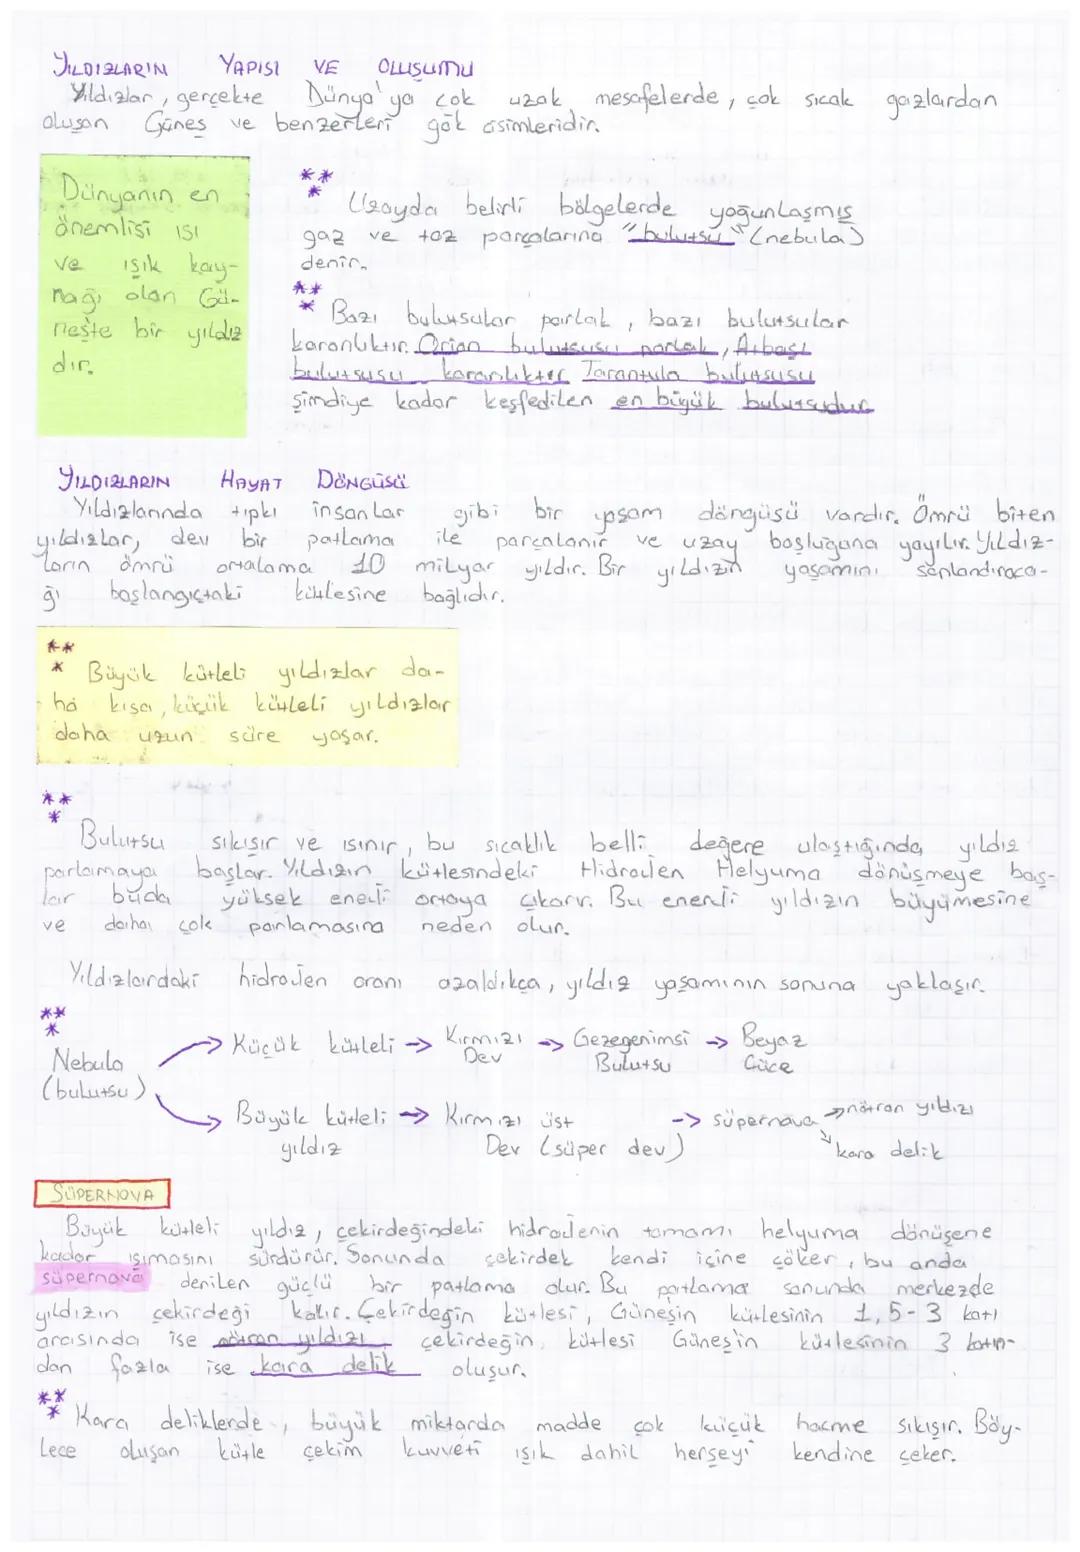 YILDIZLARIN YAPISI VE OLUŞUMU
Yıldızlar, gerçekte Dünya'ya çok uzak mesafelerde, çok sıcak gazlardan
oluşan Güneş ve benzerleri gök cisimleridir.
Dünyanın en
önemlisi ısı
ve ışık kay-
nağı olan Gü-
neşte bir yıldız
dır.
***
Uzayda belirli bölgelerde yoğunlaşmış
gaz ve toz parçalarına "bulutsu" (nebula)
denir.
***
Bazı bulutsular parlak, bazı bulutsular
karanlıktır. Orion bulutsusu parlak, Atbaşı
bulutsusu karanlıktır. Tarantula bulutsusu
şimdiye kadar keşfedilen en büyük bulutsudur
YILDIZLARIN HAYAT DÖNGÜSÜ
Yıldızlarında tıpkı insanlar gibi bir yaşam döngüsü vardır. Ömrü biten
yıldızlar, dev bir patlama ile parçalanır ve uzay boşluğuna yayılır. Yıldız-
ların ömrü ortalama 10 milyar yıldır. Bir yıldızın yaşamını sonlandıraca-
ğı başlangıçtaki kütlesine bağlıdır.
***
Büyük kütleli yıldızlar da-
ha kısa, küçük kütleli yıldızlar
daha uzun süre yaşar.
***
Bulutsu sıkışır ve ısınır, bu sıcaklık belli değere ulaştığında, yıldız
parlamaya başlar. Yıldızın kütlesindeki Hidrojen Helyuma dönüşmeye baş-
lar buda yüksek enerji ortaya çıkarır. Bu enerji yıldızın büyümesine
ve daha çok parlamasına neden olur.
Yıldızlardaki hidrojen oranı azaldıkça, yıldız yaşamının sonuna yaklaşır.
***
Nebula
(bulutsu)
→ Küçük kütleli → Kırmızı Dev → Gezegenimsi Bulutsu → Beyaz Cüce
→ Büyük kütleli yıldız → Kırmızı üst Dev (süper dev) → süpernova → nötron yıldızı
→ kara delik
SÜPERNOVA
Büyük kütleli yıldız, çekirdeğindeki hidrojenin tamamı helyuma dönüşene
kadar ışımasını sürdürür. Sonunda çekirdek kendi içine çöker, bu anda
süpernova denilen güçlü bir patlama olur. Bu patlama sonunda merkezde
yıldızın çekirdeği kalır. Çekirdeğin kütlesi, Güneşin kütlesinin 1,5-3 katı
arasında ise nötron yıldızı çekirdeğin, kütlesi Güneş'in kütlesinin 3 katın-
dan fazla ise kara delik oluşur.
***
Kara deliklerde, büyük miktarda madde çok küçük hacme sıkışır. Böy-
lece oluşan kütle çekim kuvveti ışık dahil herşeyi kendine çeker.